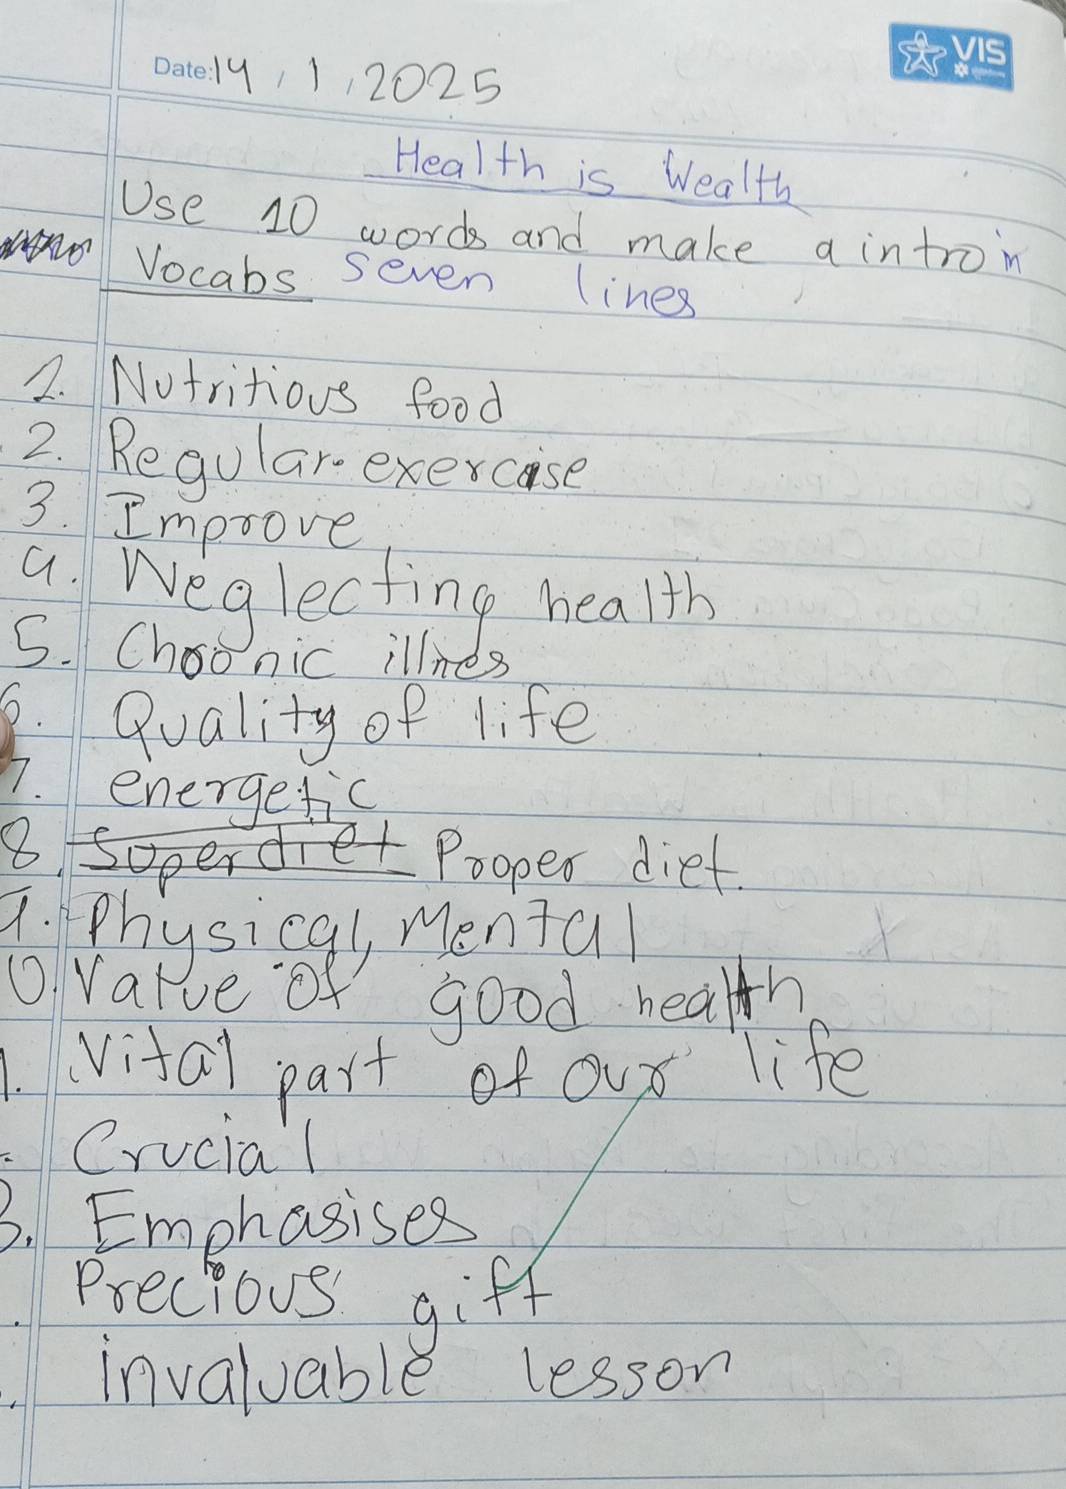 VIS
Date: 14, 1, 2025
Health is Wealth
Use 10 words and make a intro in
Vocabs seven lines
1. Nutritious food
2. Regular exercise
3. Improve
4. Neglecting health
5. Chronic illnes
6. Quality of life
7. energetic
8. Superdiet Proper diet.
9. Physical, Mental
0. Value of good health
1. Vital part of our life
Crucial
3. Emphasises
Precious gift
invaluable lesson